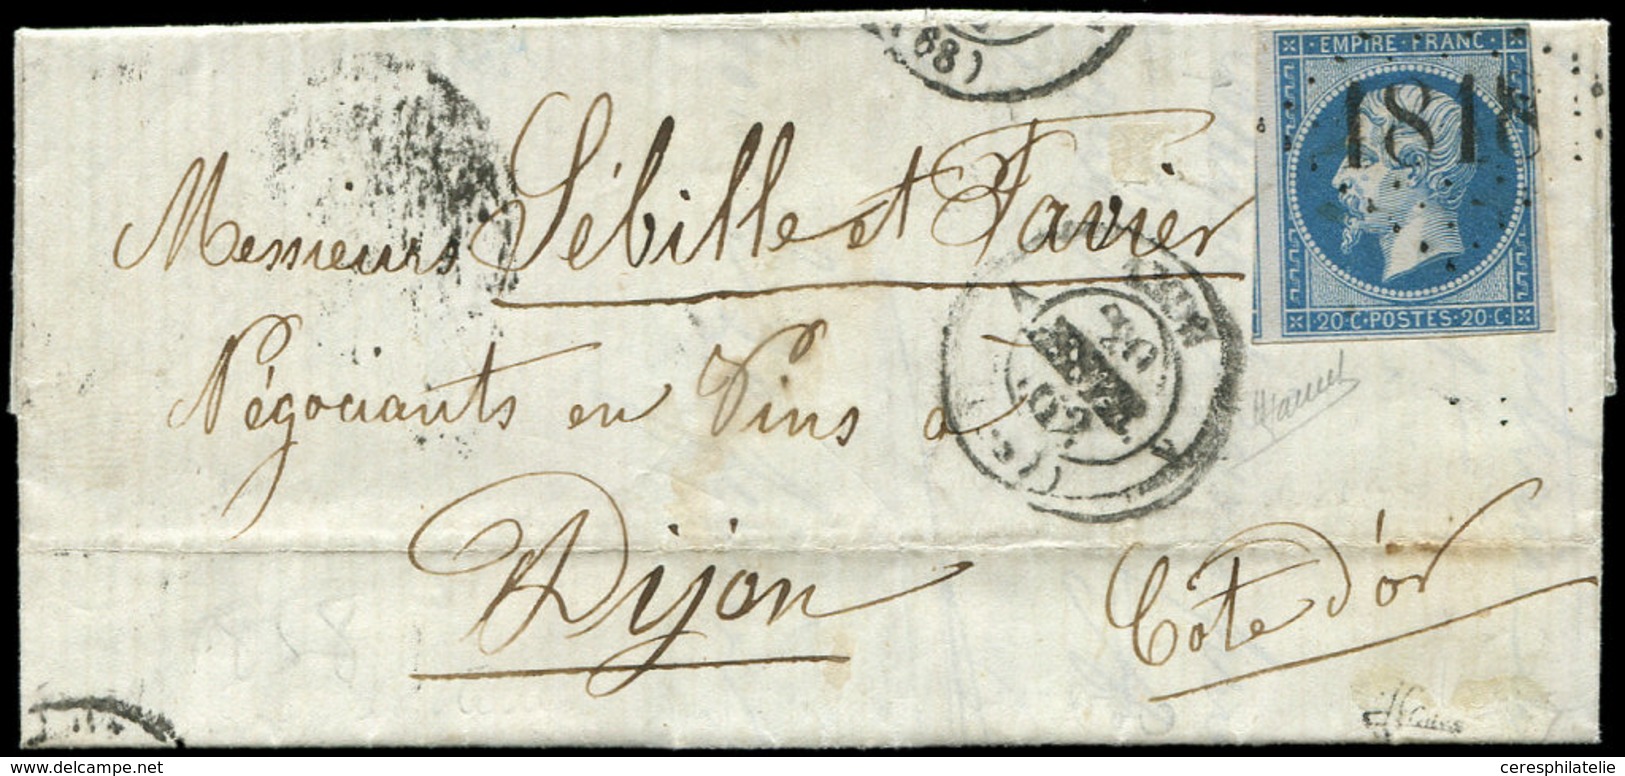 (68)
EMPIRE FRANC
1818
20·C·POSTES·20·C
Messieurs Sébille et Favier
Négociants en Vins à
Dijon
Côte d'or
© www.delcampe.net
ceresphilatelie